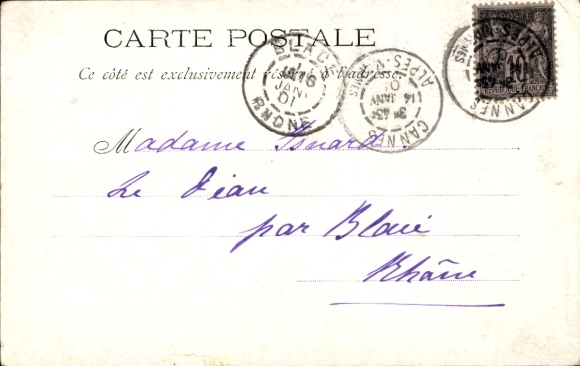 CARTE POSTALE
Ce côté est exclusivement réservé à l'adresse.
BLACÉ
16
JANV
01
RHONE
CANNES
ALPES-MMES
3E 45E
14
JANV
01
CANNES
POSTE
10
REPUBLIQUE FRANÇAISE
Madame Isnard
Le Déau
par Blacé
Rhône